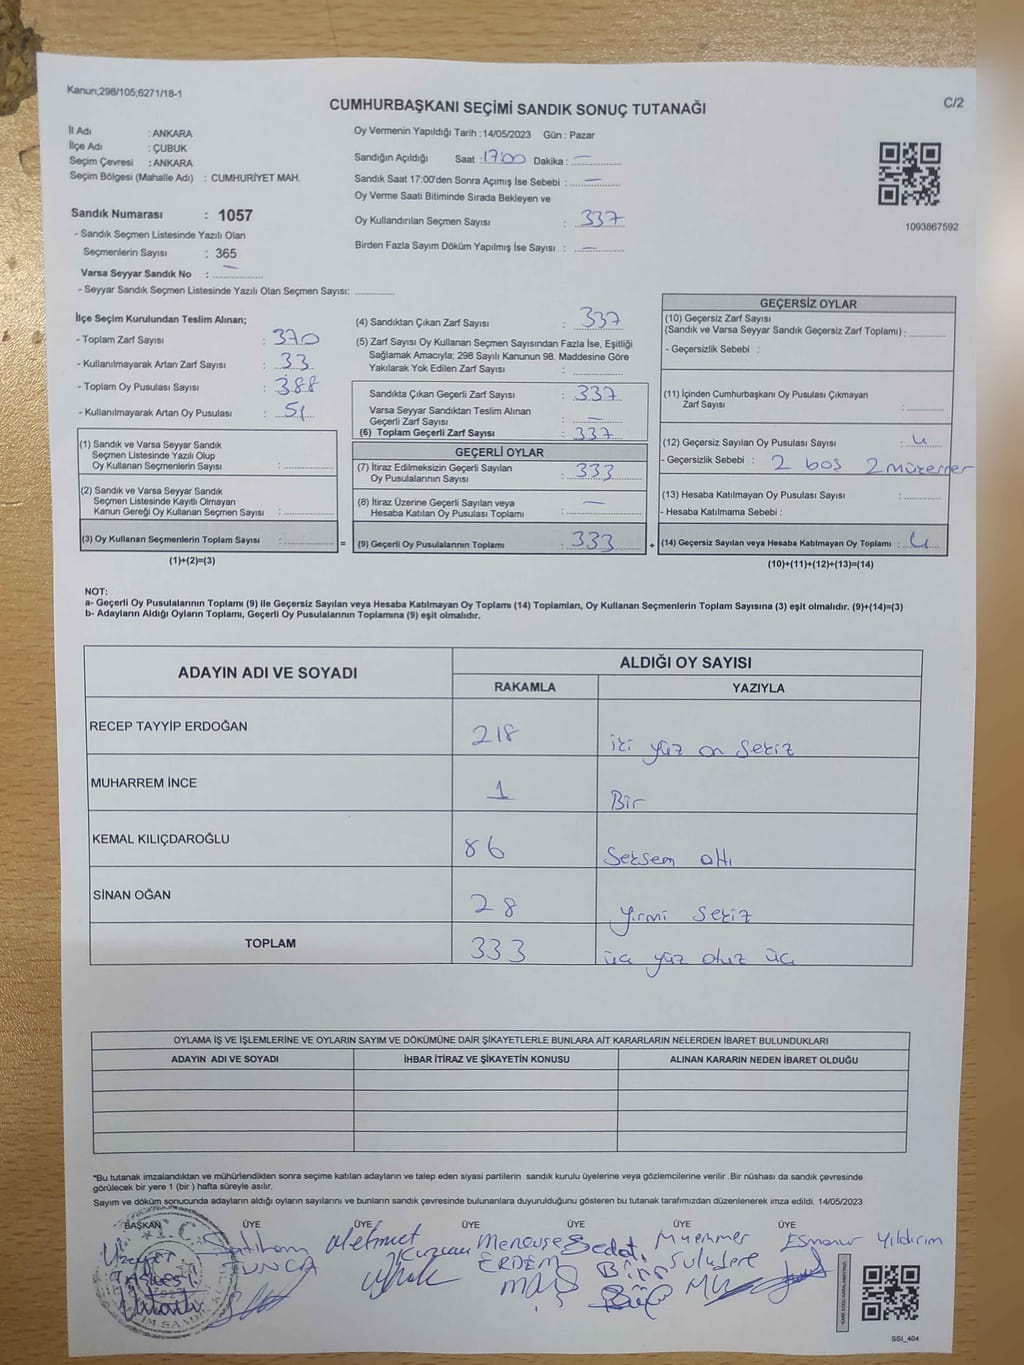 Kanun;298/105;6271/18-1
CUMHURBAŞKANI SEÇİMİ SANDIK SONUÇ TUTANAĞI
C/2
İl Adı : ANKARA
İlçe Adı : ÇUBUK
Seçim Çevresi : ANKARA
Seçim Bölgesi (Mahalle Adı) : CUMHURİYET MAH.
Sandık Numarası : 1057
- Sandık Seçmen Listesinde Yazılı Olan
Seçmenlerin Sayısı : 365
Varsa Seyyar Sandık No : —
- Seyyar Sandık Seçmen Listesinde Yazılı Olan Seçmen Sayısı:
Oy Vermenin Yapıldığı Tarih : 14/05/2023 Gün : Pazar
Sandığın Açıldığı Saat : 17:00 Dakika : —
Sandık Saat 17:00'den Sonra Açımış İse Sebebi : —
Oy Verme Saati Bitiminde Sırada Bekleyen ve
Oy Kullandırılan Seçmen Sayısı : 337
Birden Fazla Sayım Döküm Yapılmış İse Sayısı : —
1093867592
İlçe Seçim Kurulundan Teslim Alınan;
- Toplam Zarf Sayısı : 370
- Kullanılmayarak Artan Zarf Sayısı : 33
- Toplam Oy Pusulası Sayısı : 388
- Kullanılmayarak Artan Oy Pusulası : 51
(1) Sandık ve Varsa Seyyar Sandık
Seçmen Listesinde Yazılı Olup
Oy Kullanan Seçmenlerin Sayısı :
(2) Sandık ve Varsa Seyyar Sandık
Seçmen Listesinde Kayıtlı Olmayan
Kanun Gereği Oy Kullanan Seçmen Sayısı :
(3) Oy Kullanan Seçmenlerin Toplam Sayısı :
(1)+(2)=(3)
(4) Sandıktan Çıkan Zarf Sayısı : 337
(5) Zarf Sayısı Oy Kullanan Seçmen Sayısından Fazla İse, Eşitliği
Sağlamak Amacıyla; 298 Sayılı Kanunun 98. Maddesine Göre
Yakılarak Yok Edilen Zarf Sayısı :
Sandıkta Çıkan Geçerli Zarf Sayısı : 337
Varsa Seyyar Sandıktan Teslim Alınan
Geçerli Zarf Sayısı : —
(6) Toplam Geçerli Zarf Sayısı : 337
GEÇERLİ OYLAR
(7) İtiraz Edilmeksizin Geçerli Sayılan
Oy Pusulalarının Sayısı : 333
(8) İtiraz Üzerine Geçerli Sayılan veya
Hesaba Katılan Oy Pusulası Toplamı : —
= (9) Geçerli Oy Pusulalarının Toplamı : 333
GEÇERSİZ OYLAR
(10) Geçersiz Zarf Sayısı
(Sandık ve Varsa Seyyar Sandık Geçersiz Zarf Toplamı) :
- Geçersizlik Sebebi :
(11) İçinden Cumhurbaşkanı Oy Pusulası Çıkmayan
Zarf Sayısı :
(12) Geçersiz Sayılan Oy Pusulası Sayısı : 4
- Geçersizlik Sebebi : 2 boş 2 mükerrer
(13) Hesaba Katılmayan Oy Pusulası Sayısı :
- Hesaba Katılmama Sebebi :
+ (14) Geçersiz Sayılan veya Hesaba Katılmayan Oy Toplamı : 4
(10)+(11)+(12)+(13)=(14)
NOT:
a- Geçerli Oy Pusulalarının Toplamı (9) ile Geçersiz Sayılan veya Hesaba Katılmayan Oy Toplamı (14) Toplamları, Oy Kullanan Seçmenlerin Toplam Sayısına (3) eşit olmalıdır. (9)+(14)=(3)
b- Adayların Aldığı Oyların Toplamı, Geçerli Oy Pusulalarının Toplamına (9) eşit olmalıdır.
ADAYIN ADI VE SOYADI
ALDIĞI OY SAYISI
RAKAMLA YAZIYLA
RECEP TAYYİP ERDOĞAN 218 iki yüz on sekiz
MUHARREM İNCE 1 Bir
KEMAL KILIÇDAROĞLU 86 Seksem altı
SİNAN OĞAN 28 yirmi sekiz
TOPLAM 333 üç yüz otuz üç
OYLAMA İŞ VE İŞLEMLERİNE VE OYLARIN SAYIM VE DÖKÜMÜNE DAİR ŞİKAYETLERLE BUNLARA AİT KARARLARIN NELERDEN İBARET BULUNDUKLARI
ADAYIN ADI VE SOYADI İHBAR İTİRAZ VE ŞİKAYETİN KONUSU ALINAN KARARIN NEDEN İBARET OLDUĞU
*Bu tutanak imzalandıktan ve mühürlendikten sonra seçime katılan adayların ve talep eden siyasi partilerin sandık kurulu üyelerine veya gözlemcilerine verilir .Bir nüshası da sandık çevresinde
görülecek bir yere 1 (bir ) hafta süreyle asılır.
Sayım ve döküm sonucunda adayların aldığı oyların sayılarını ve bunların sandık çevresinde bulunanlara duyurulduğunu gösteren bu tutanak tarafımızdan düzenlenerek imza edildi. 14/05/2023
BAŞKAN ÜYE ÜYE ÜYE ÜYE ÜYE ÜYE
Mehmet Menevşe Sedat Muammer Esmanur Yıldırım
TUNCA ERDEM
SSI_404